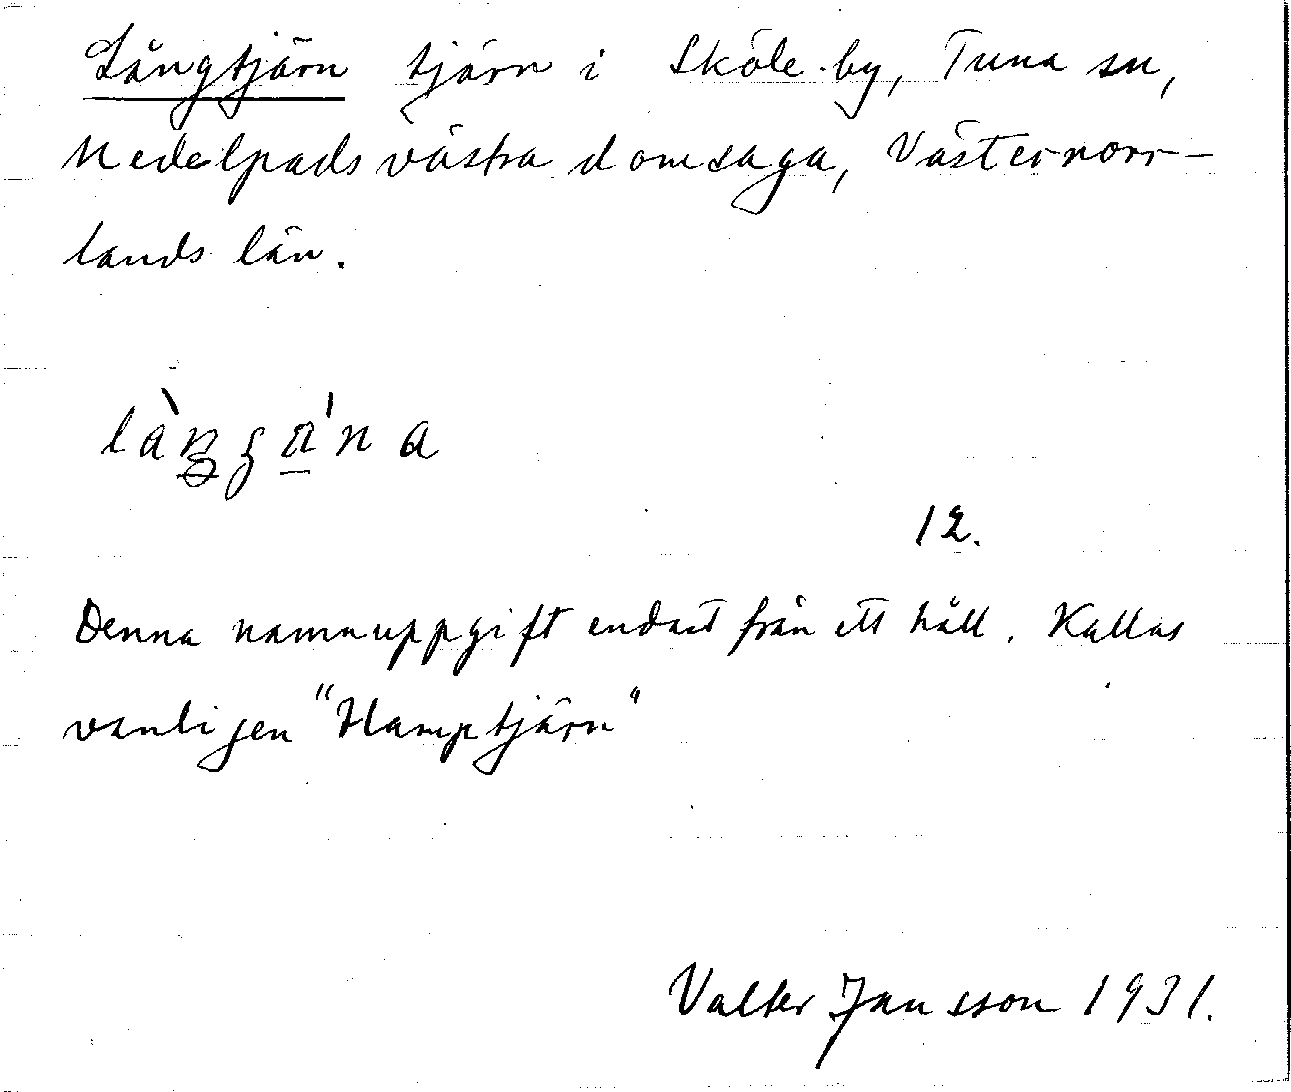 Långtjärn tjärn i Sköle by, Tuna sn,
Medelpads västra domsaga, Västernorr-
lands län.
12.
Denna namnuppgift endast från ett håll. Kallas
vanligen "Hamptjärn"
Valter Jansson 1931.